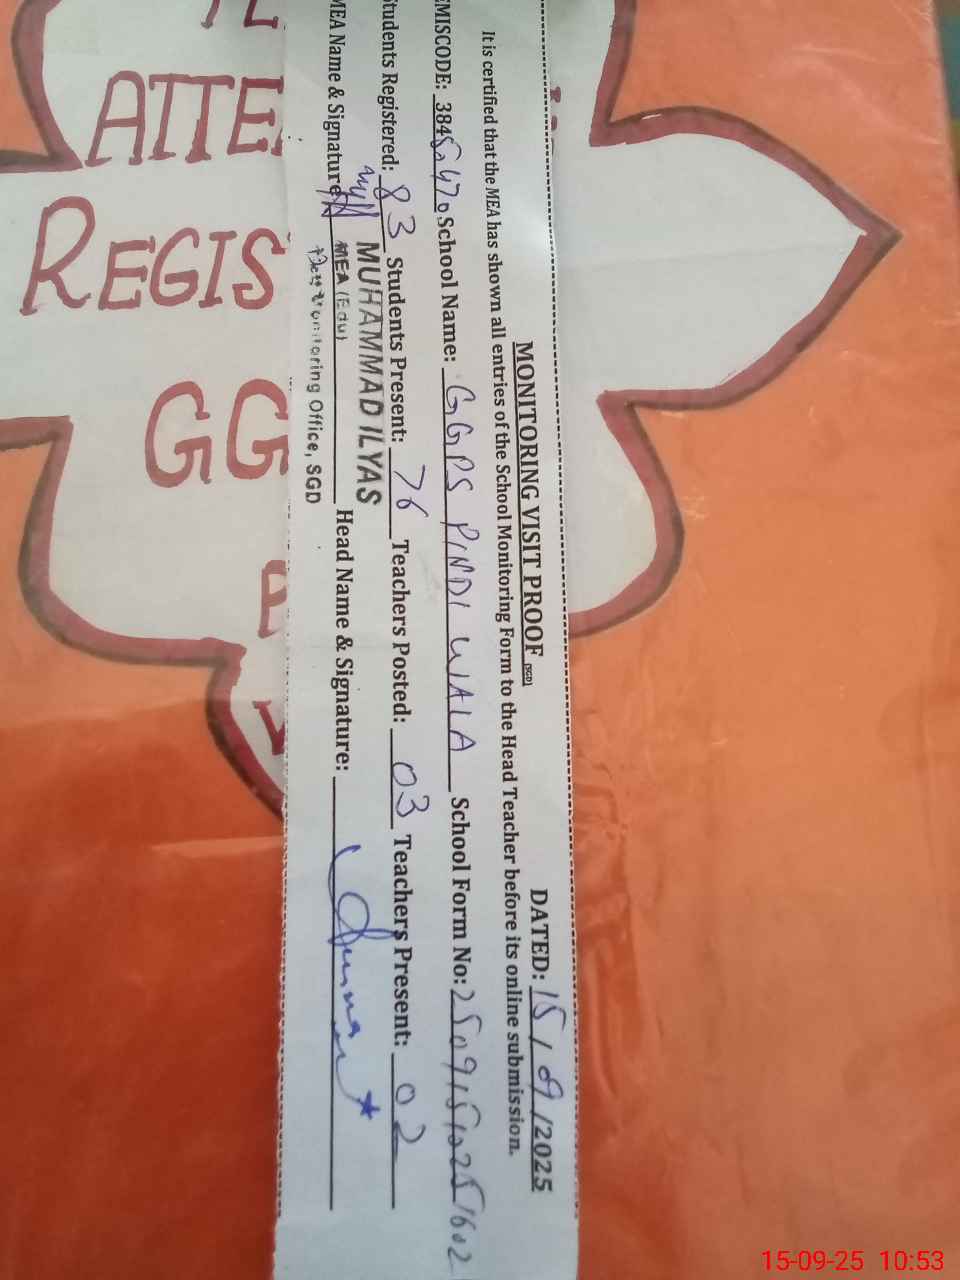 ATTE
REGIS
GG
MONITORING VISIT PROOF (SGD) DATED: 15/09/2025
It is certified that the MEA has shown all entries of the School Monitoring Form to the Head Teacher before its online submission.
EMISCODE: 384 School Name: GGPS PINDI WALA School Form No: 25091510251602
Students Registered: 83 Students Present: 76 Teachers Posted: 03 Teachers Present: 02
MEA Name & Signature Head Name & Signature:
MUHAMMAD ILYAS
MEA (Edu)
Monitoring Office, SGD
15-09-25 10:53